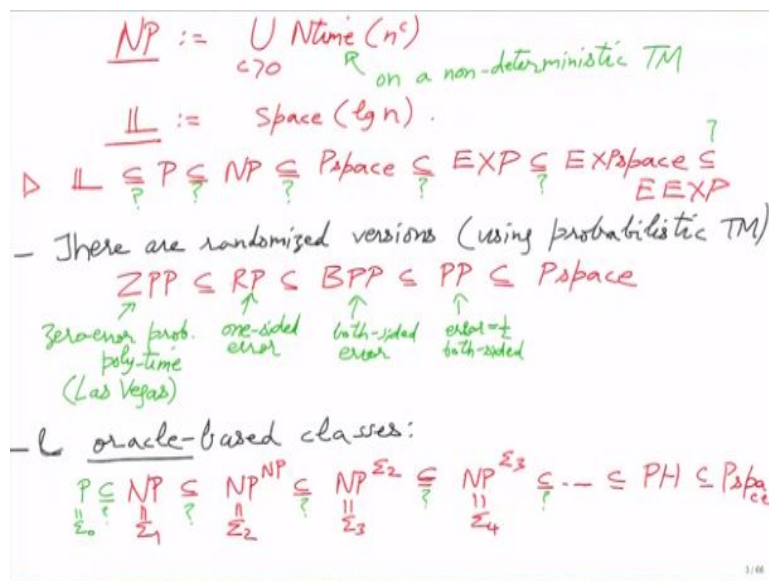 NP := ∪ Ntime (n^c)
c>0
on a non-deterministic TM
𝕃 := Space (lg n).
▷ 𝕃 ⊆ P ⊆ NP ⊆ Pspace ⊆ EXP ⊆ EXPspace ⊆
? ? ? ? ? ?
EEXP
- There are randomized versions (using probabilistic TM)
ZPP ⊆ RP ⊆ BPP ⊆ PP ⊆ Pspace
zero error prob. poly-time (Las Vegas)
one-sided error
both-sided error
error=½ both-sided
- oracle-based classes:
P ⊆ NP ⊆ NP^NP ⊆ NP^Σ2 ⊆ NP^Σ3 ⊆ ... ⊆ PH ⊆ Pspace
? ? ? ? ?
=Σ0 =Σ1 =Σ2 =Σ3 =Σ4
3/66